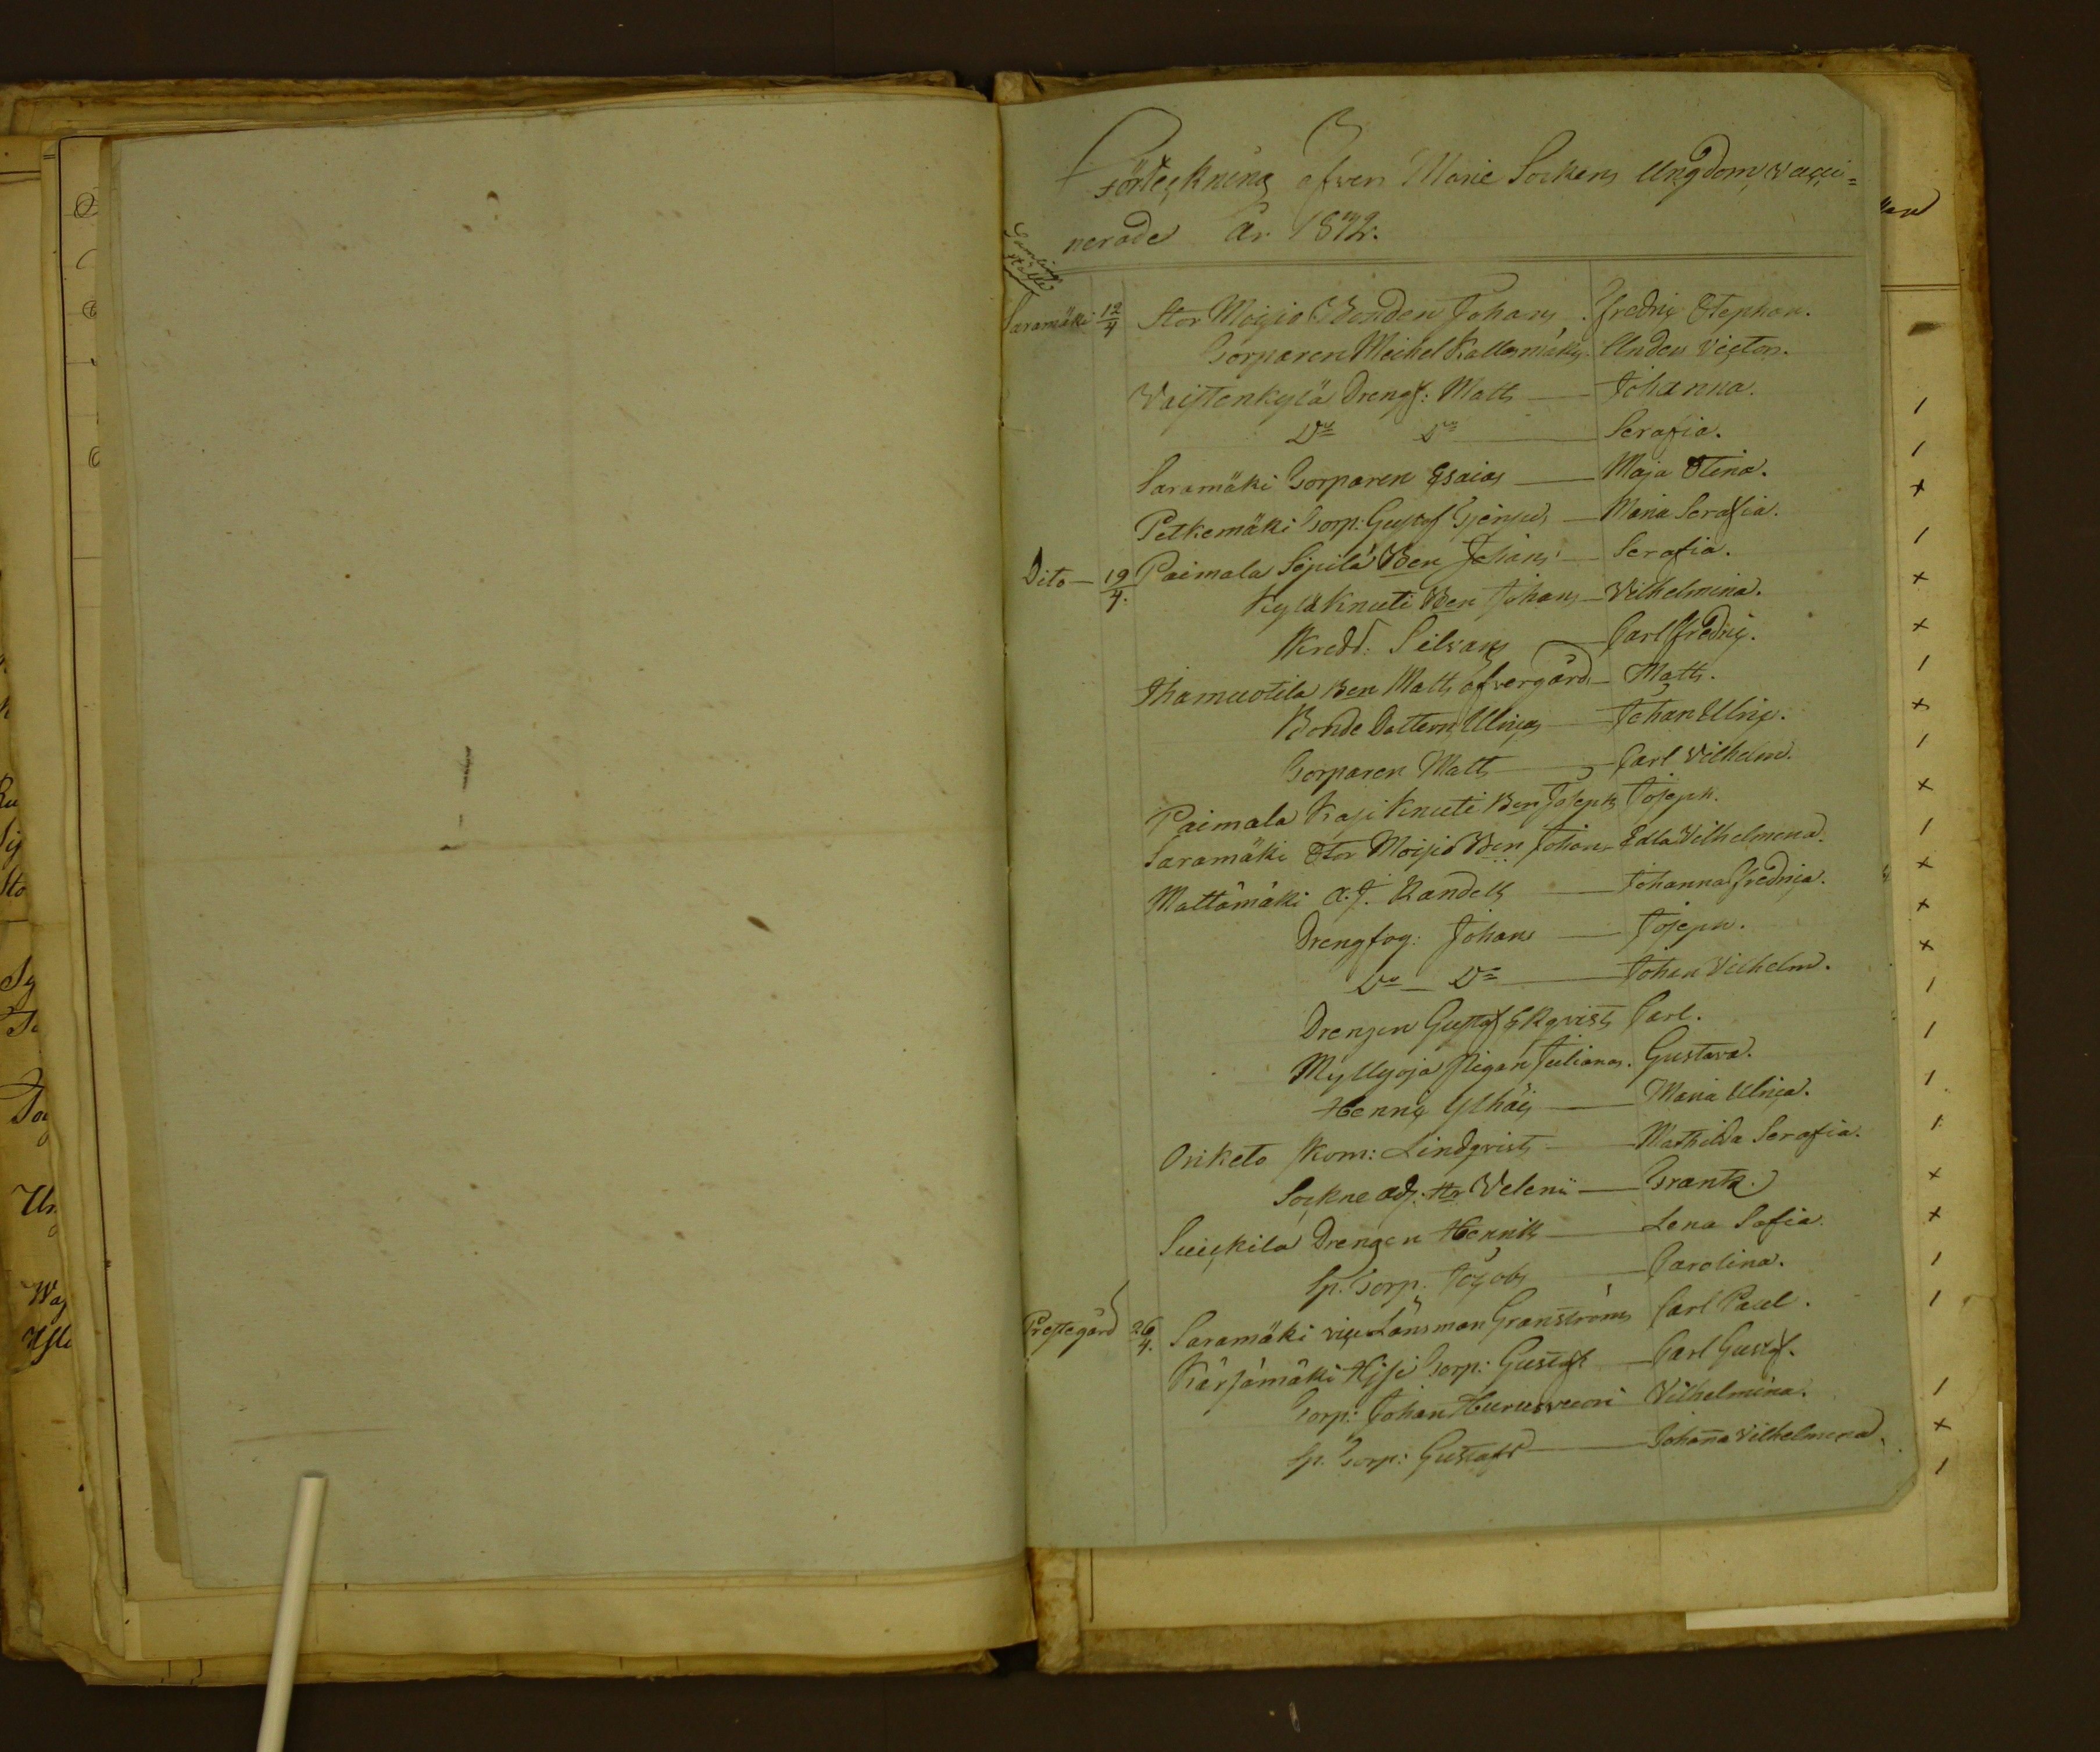 Förteckning öfver Marie Sockens Ungdom, vacci=
nerade År 1842.
Samlings ställe
Saramäki 12/4 Stor Moisio Bonden Johans Fredric Stephan.
Torparen Michel Kallasmäkis Anders Victor.
Vaistenkylä Drengf: Matts — Johanna.
Do Do — Serafia.
Saramäki Torparen Esaias — Maja Stina.
Petkemäki Torp: Gustaf — Maria Serafia.
Dito — 19/4. Paimala Sipilä Bden Johans — Serafia.
Kylä Knuti Bden Johans — Vilhelmina.
Skredd: Silvans — Carl Fredric.
Ihamuotila Bden Matts öfvergård — Matts.
Bonde Dottern Ulricas — Johan Ulric.
Torparen Matts — Carl Vilhelm.
Paimala Knuti Bden Josephs Joseph.
Saramäki Stor Moisio Bden Johans Edla Vilhelmina.
Mattämäki A. J. Randells — Johanna Fredrica.
Drengfog: Johans — Joseph.
Do — Do — Johan Vilhelm.
Drengen Gustaf Ekqvists Carl.
Myllyoja Pigan Julianas. Gustava.
Henric — Maria Ulrica.
Oriketo Kom: Lindqvists — Mathilda Serafia.
Sockne adj: Hr Velenii — Frantz.
Suickila Drengen Henriks — Lena Sofia.
Sp. Torp. Jacobs — Carolina.
Prestegård 26/4. Saramäki vice Länsman Granströms Carl Paul.
Kärsämäki Hissi Torp: Gustafs — Carl Gustaf.
Torp: Johan Huruusvuori Vilhelmina.
Sp. Torp: Gustafs — Johanna Vilhelmina.